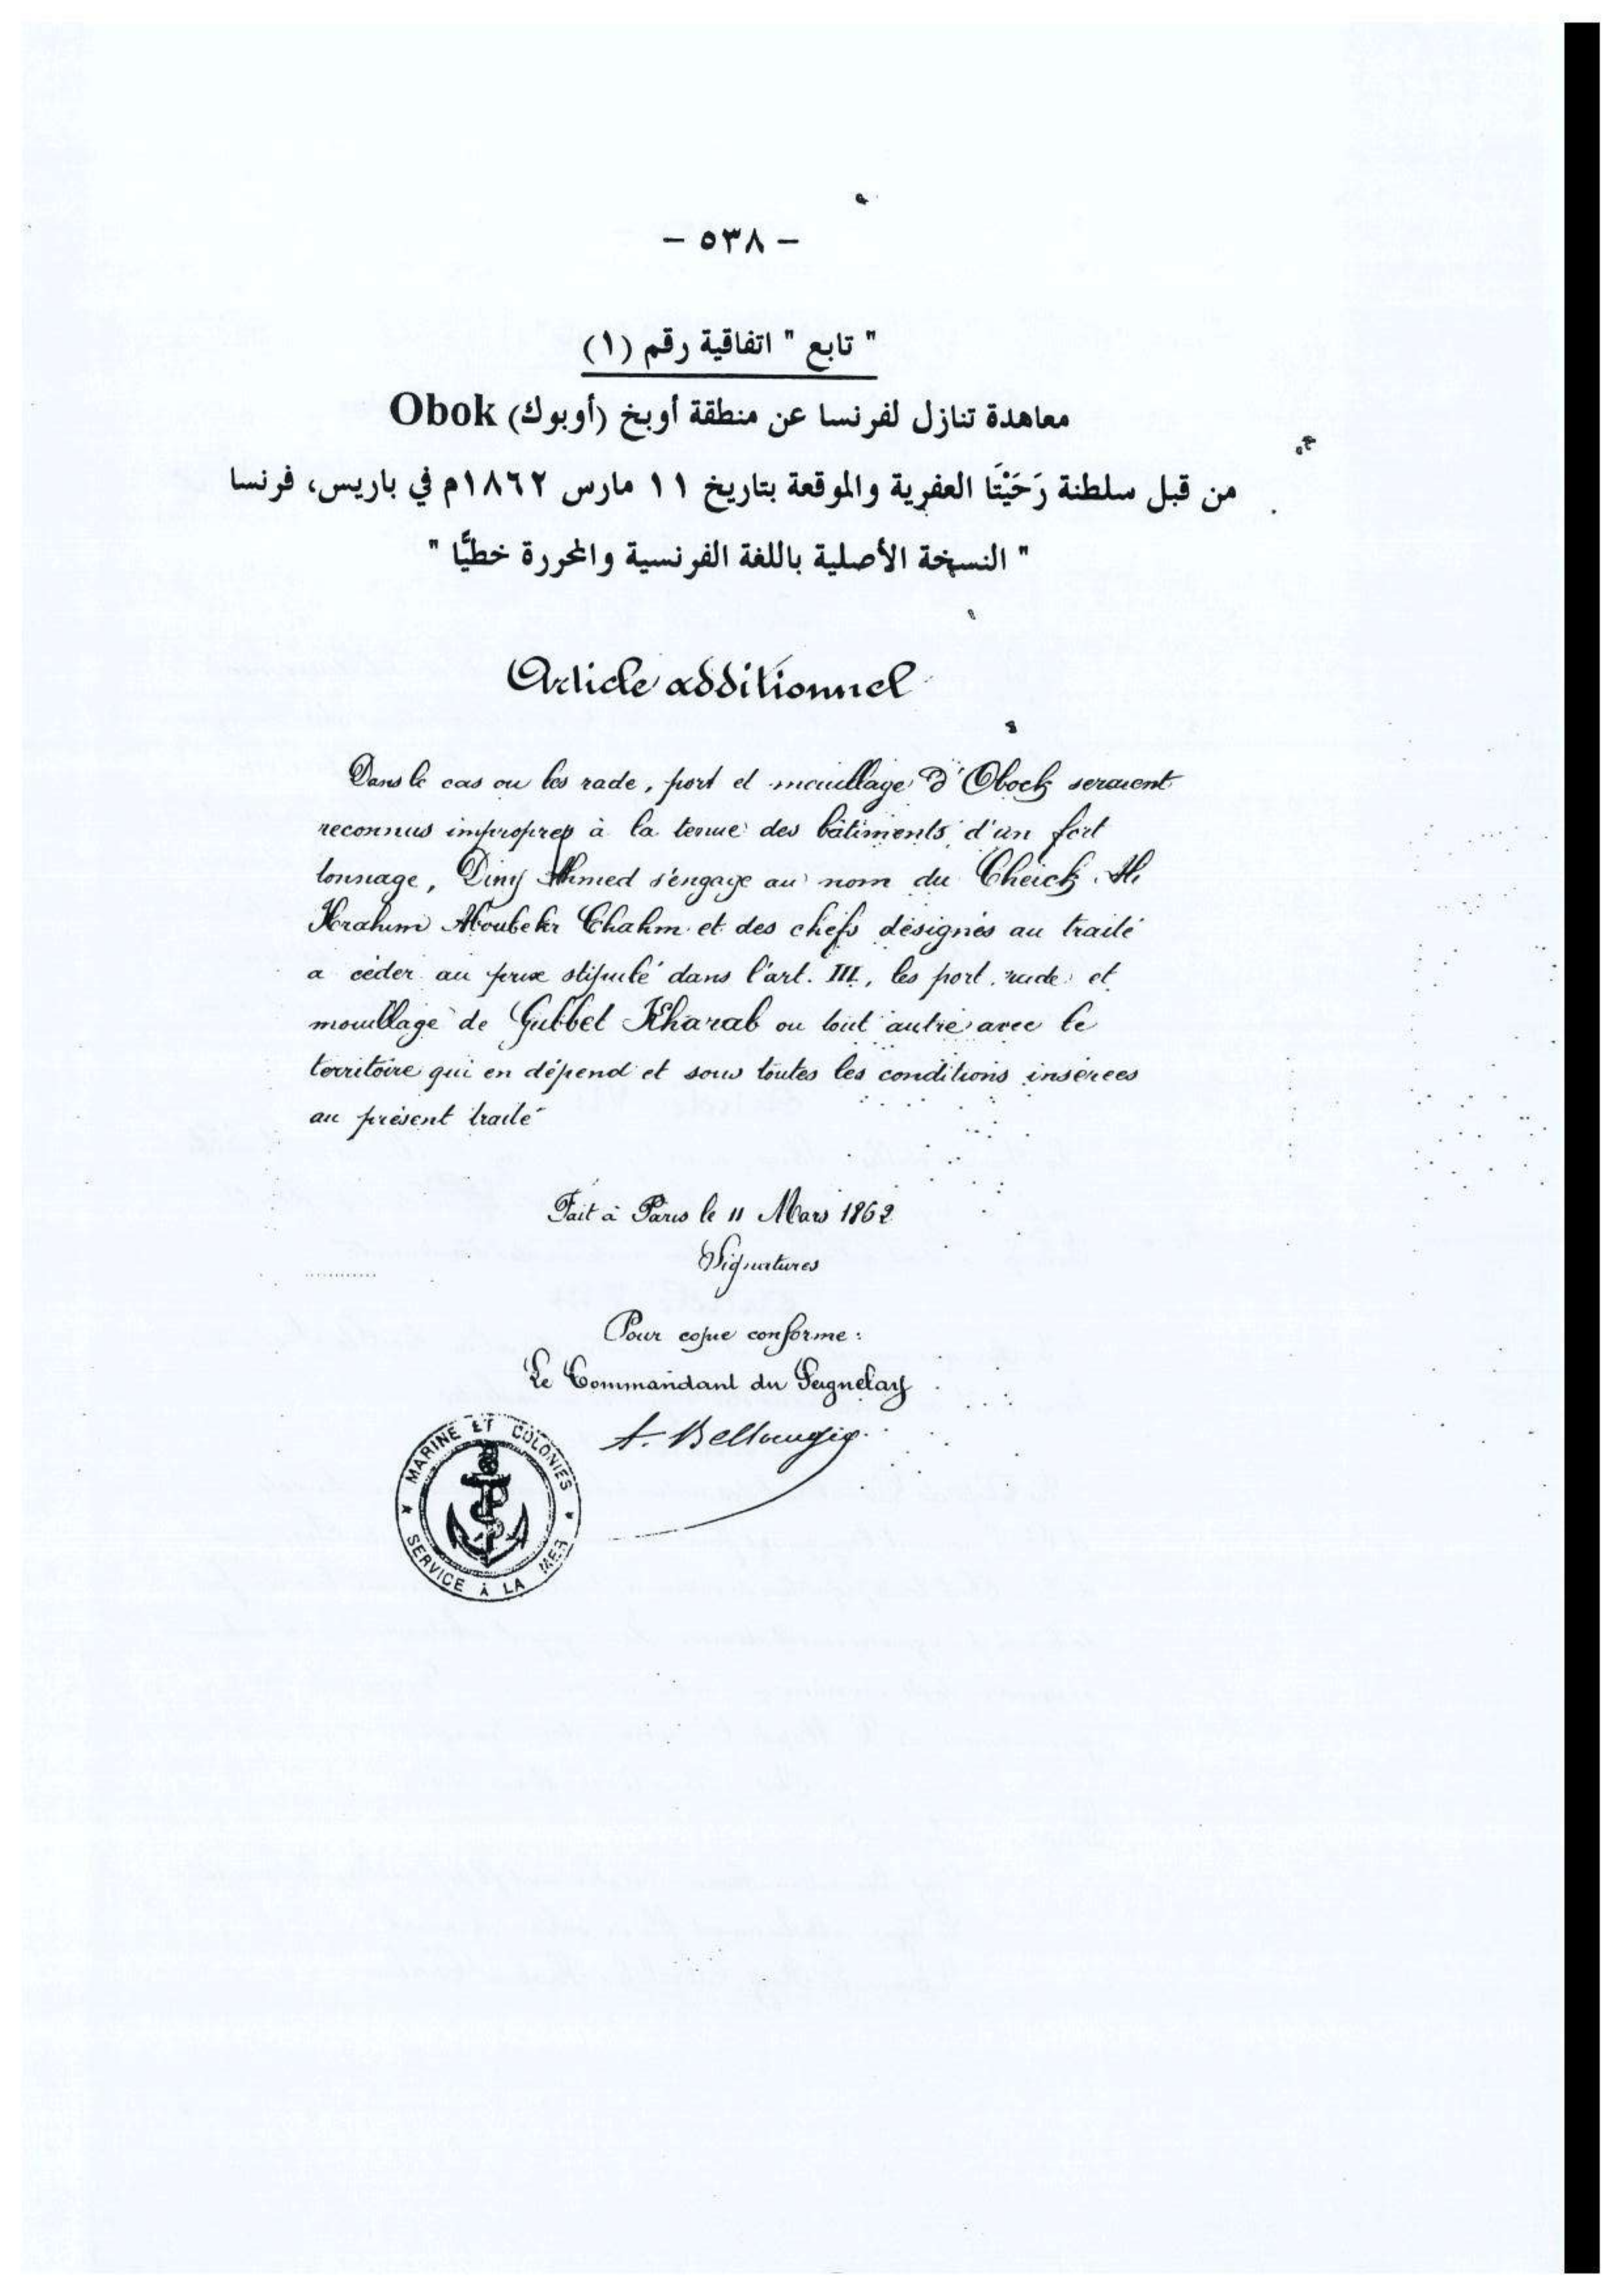 - ٥٣٨ -
" تابع " اتفاقية رقم (١)
معاهدة تنازل لفرنسا عن منطقة أوبخ (أوبوك) Obok
من قبل سلطنة رَحَيْتَا العفرية والموقعة بتاريخ ١١ مارس ١٨٦٢م في باريس، فرنسا
" النسخة الأصلية باللغة الفرنسية والمحررة خطيًّا "
Article additionnel
Dans le cas ou les rade, port et mouillage d'Obock seraient
reconnus impropres à la tenue des bâtiments d'un fort
tonnage, Diny Ahmed s'engage au nom du Cheick
Ibrahim Aboubekr Chahm et des chefs désignés au traité
a céder au prix stipulé dans l'art. III, les port, rade et
mouillage de Gubbet Kharab ou tout autre avec le
territoire qui en dépend et sous toutes les conditions insérées
au présent traité
Fait à Paris le 11 Mars 1862
Signatures
Pour copie conforme :
Le Commandant du Seignelay
MARINE ET COLONIES
SERVICE À LA MER